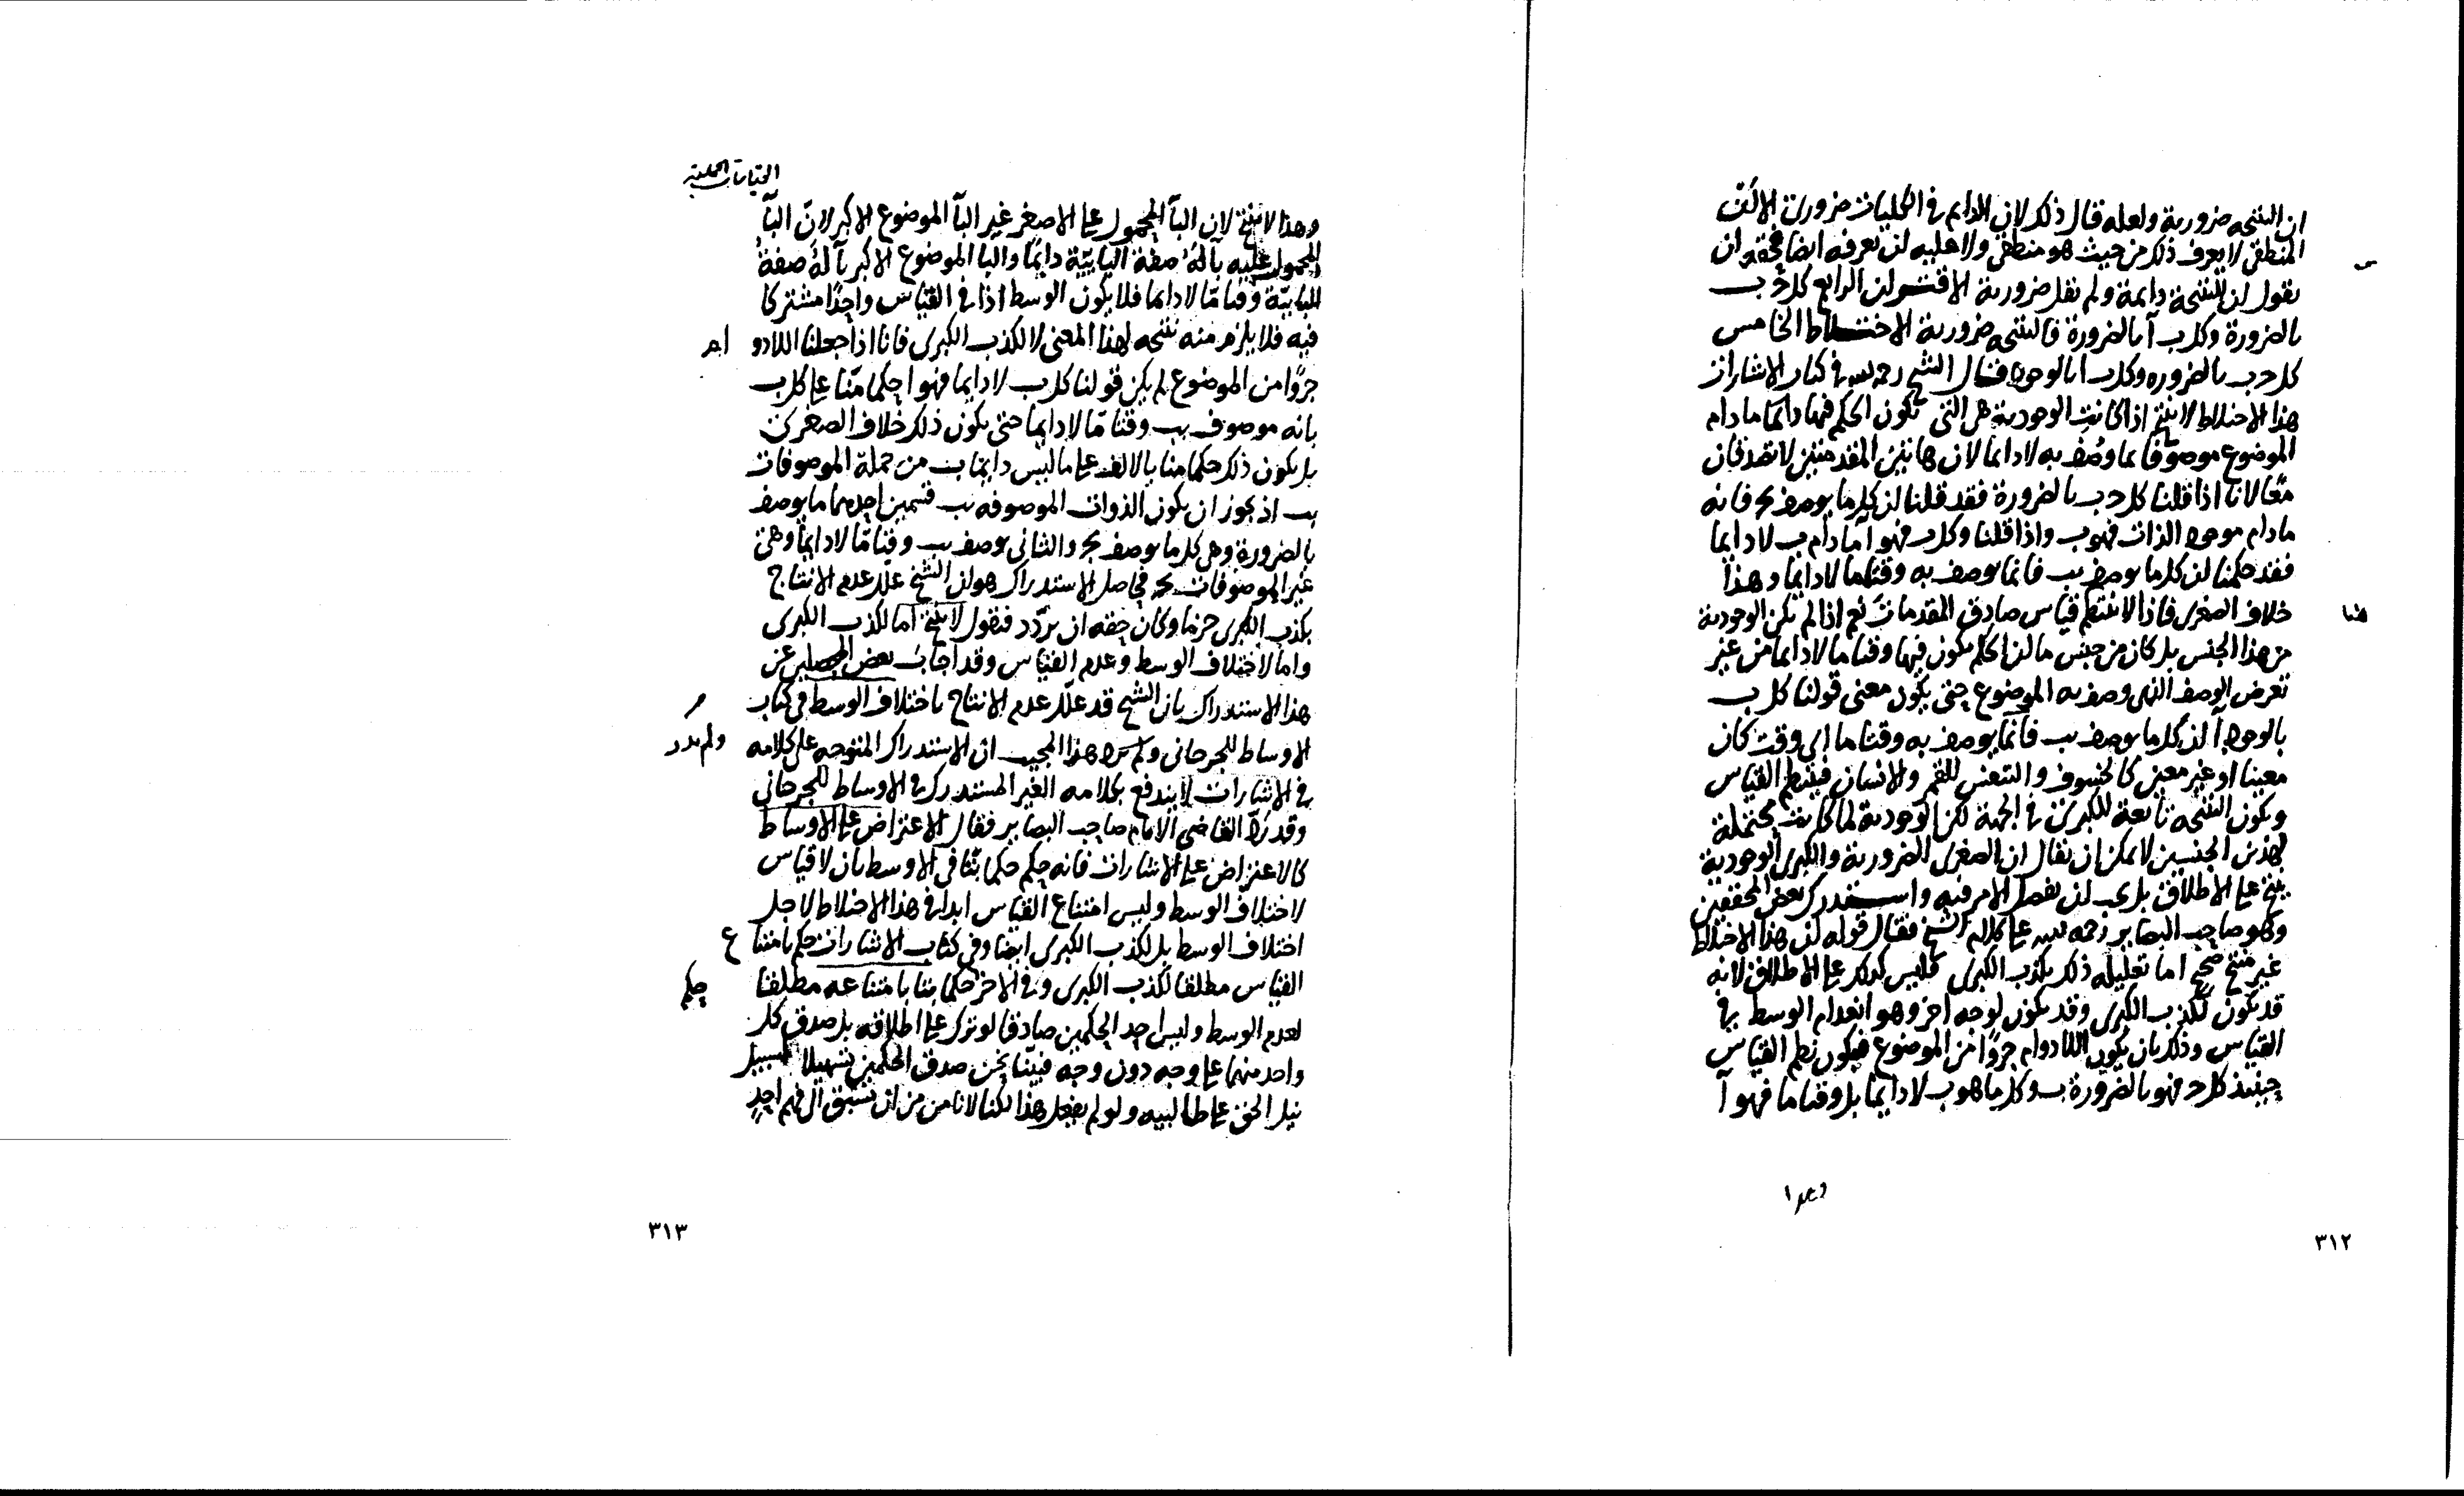 ان النتيجه ضرورية ولعله قال ذلك لان الدايم فى الكليات ضرورى الا ان
المنطقى لا يعرف ذلك من حيث هو منطقى ولا عليه ان يعرفه ايضا فحقه ان
يقول ان النتيجة دايمة ولم نقل ضرورية الاقتران الرابع كل ج ب
بالضرورة وكل ب آ بالضرورة فالنتيجه ضرورية الاختلاط الخامس
كل ج ب بالضروره وكل ب ا بالوجود فقال الشيخ رحمه الله فى كتاب الاشارات
هذا الاختلاط لا ينتج اذا كانت الوجودية هى التى تكون الحكم فيها دايما ما دام
الموضوع موصوفا بما وُصف به لا دايما لان هاتين المقدمتين لا تصدقان
معًا لانا اذا قلنا كل ج ب بالضرورة فقد قلنا ان كل ما يوصف بج فانه
ما دام موجود الذات فهو ب واذا قلنا وكل ب فهو آ ما دام ب لا دايما
فقد حكمنا ان كل ما يوصف بب فانما يوصف به وقتا ما لا دايما وهذا
خلاف الصغرى فاذا لا ينتظم قياس صادق المقدمات نعم اذا لم تكن الوجودية
من هذا الجنس بل كان من جنس ما ان الحكم يكون فيها وقتا ما لا دايما من غير
تعرض الوصف الذى وصف به الموضوع حتى يكون معنى قولنا كل ب
بالوجود آ ان كل ما يوصف بب فانما يوصف به وقتا ما اى وقت كان
معينا او غير معين كالخسوف والتنفس للقمر والانسان فينتظم القياس
وتكون النتيجه تابعة للكبرى فى الجهة لكن الوجودية لما كانت محتملة
لهذين الجنسين لا يمكن ان يقال ان الصغرى الضرورية والكبرى الوجودية
ينتج على الاطلاق بل يجب ان يفصل الامر فيه واستدرك بعض المحققين
وهو صاحب البصاير رحمه الله على كلام الشيخ فقال قوله ان هذا الاختلاط
غير منتج صحيح اما تعليله ذلك بكذب الكبرى فليس كذلك على الاطلاق لانه
قد تكون لكذب الكبرى وقد يكون لوجه اخر وهو انعدام الوسط فى
القياس وذلك بان يكون اللادوام جزوًا من الموضوع فيكون نظم القياس
حينئذ كل ج فهو بالضرورة ب وكل ما هو ب لا دايما بل وقتا ما فهو آ
هنا
وهذا
٣١٢
القياسات الحملية
وهذا لا ينتج لان البآ المحمول على الاصغر غير البآ الموضوع الاكبر لان البآ
المحمول عليه بآ لهُ صفة البايية دايما والبا الموضوع الاكبر بآ لهُ صفةُ
البايية وقتا مّا لا دايما فلا يكون الوسط اذا فى القياس واحدًا مشتركا
فيه فلا يلزم منه نتيجه لهذا المعنى لا لكذب الكبرى فانا اذا جعلنا اللادو ام
جزوًا من الموضوع لم يكن قولنا كل ب لا دايما فهو ا حكما منّا على كل ب
بانه موصوف بب وقتا مّا لا دايما حتى يكون ذلك خلاف الصغرى
بل يكون ذلك حكما منا بالالف على ما ليس دايما ب من جملة الموصوفات
بب اذ يجوز ان يكون الذوات الموصوفه بب قسمين احدهما ما يوصف
بالضرورة وهى كل ما يوصف بج والثانى يوصف بب وقتا مّا لا دايما وهى
غير الموصوفات بج فحاصل الاستدراك هو ان الشيخ علّل عدم الانتاج
بكذب الكبرى جزما وكان حقه ان يردّد فيقول لا ينتج اما لكذب الكبرى
واما لاختلاف الوسط وعدم القياس وقد اجاب بعض المحصلين عن
هذا الاستدراك بان الشيخ قد علّل عدم الانتاج باختلاف الوسط فى كتاب
الاوساط للجرجانى ولم هذا المجيب ان الاستدراك المتوجه على كلامه
ولم يدر
فى الاشارات لا يندفع بكلامه الغير المستدرك فى الاوساط للجرجانى
وقد ردّ القاضى الامام صاحب البصاير فقال الاعتراض على الاوساط
كالاعتراض على الاشارات فانه حكم حكما بتّا فى الاوسط بان لا قياس
لاختلاف الوسط وليس امتناع القياس ابدا فى هذا الاختلاط لاجل
اختلاف الوسط بل لكذب الكبرى ايضا وفى كتاب الاشارات حكم بامتناع
القياس مطلقا لكذب الكبرى وفى الاخر حكما بتا بامتناعه مطلقا
حكم
لعدم الوسط وليس احد الحكمين صادقا لو ترك على اطلاقه بل صدق كل
واحد منهما على وجه دون وجه فبيّنا نحن صدق الحكمين تسهيلا لسبيل
نيل الحق على طالبيه ولو لم نفعل هذا لكنا لا نامن من ان يسبق الى فهم احدٍ
٣١٣